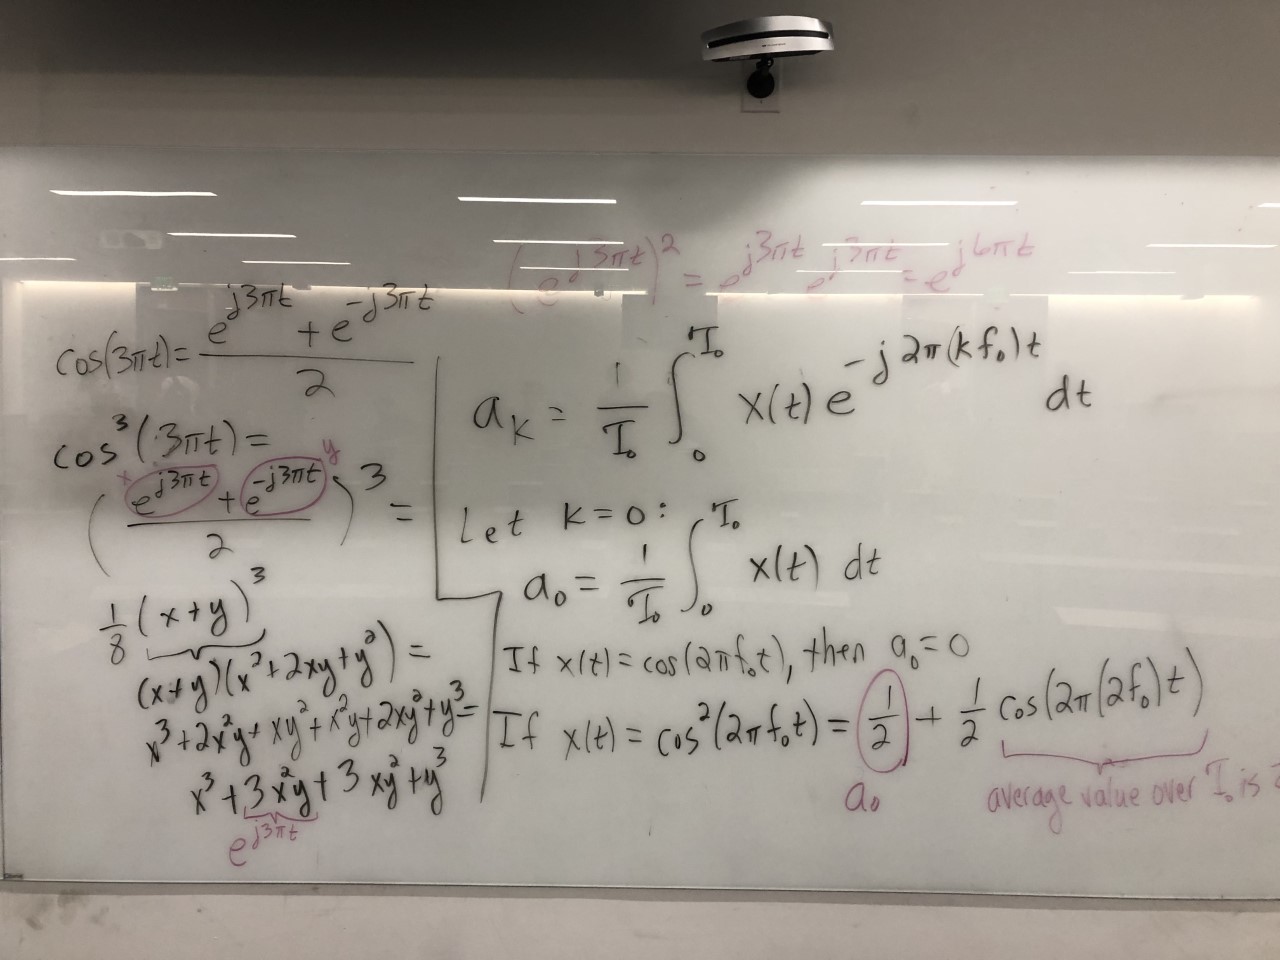 (e^{j3πt})^2 = e^{j3πt} e^{j3πt} = e^{j6πt}
cos(3πt) = \frac{e^{j3πt} + e^{-j3πt}}{2}
cos^3(3πt) =
x y
(\frac{e^{j3πt} + e^{-j3πt}}{2})^3 =
\frac{1}{8} (x+y)^3
(x+y)(x^2+2xy+y^2) =
x^3+2x^2y+xy^2+x^2y+2xy^2+y^3=
x^3+3x^2y+3xy^2+y^3
e^{j3πt}
a_k = \frac{1}{T_0} ∫_0^{T_0} x(t) e^{-j2π(kf_0)t} dt
Let k=0:
a_0 = \frac{1}{T_0} ∫_0^{T_0} x(t) dt
If x(t) = cos(2πf_0t), then a_0=0
If x(t) = cos^2(2πf_0t) = \frac{1}{2} + \frac{1}{2} cos(2π(2f_0)t)
a_0 average value over T_0 is